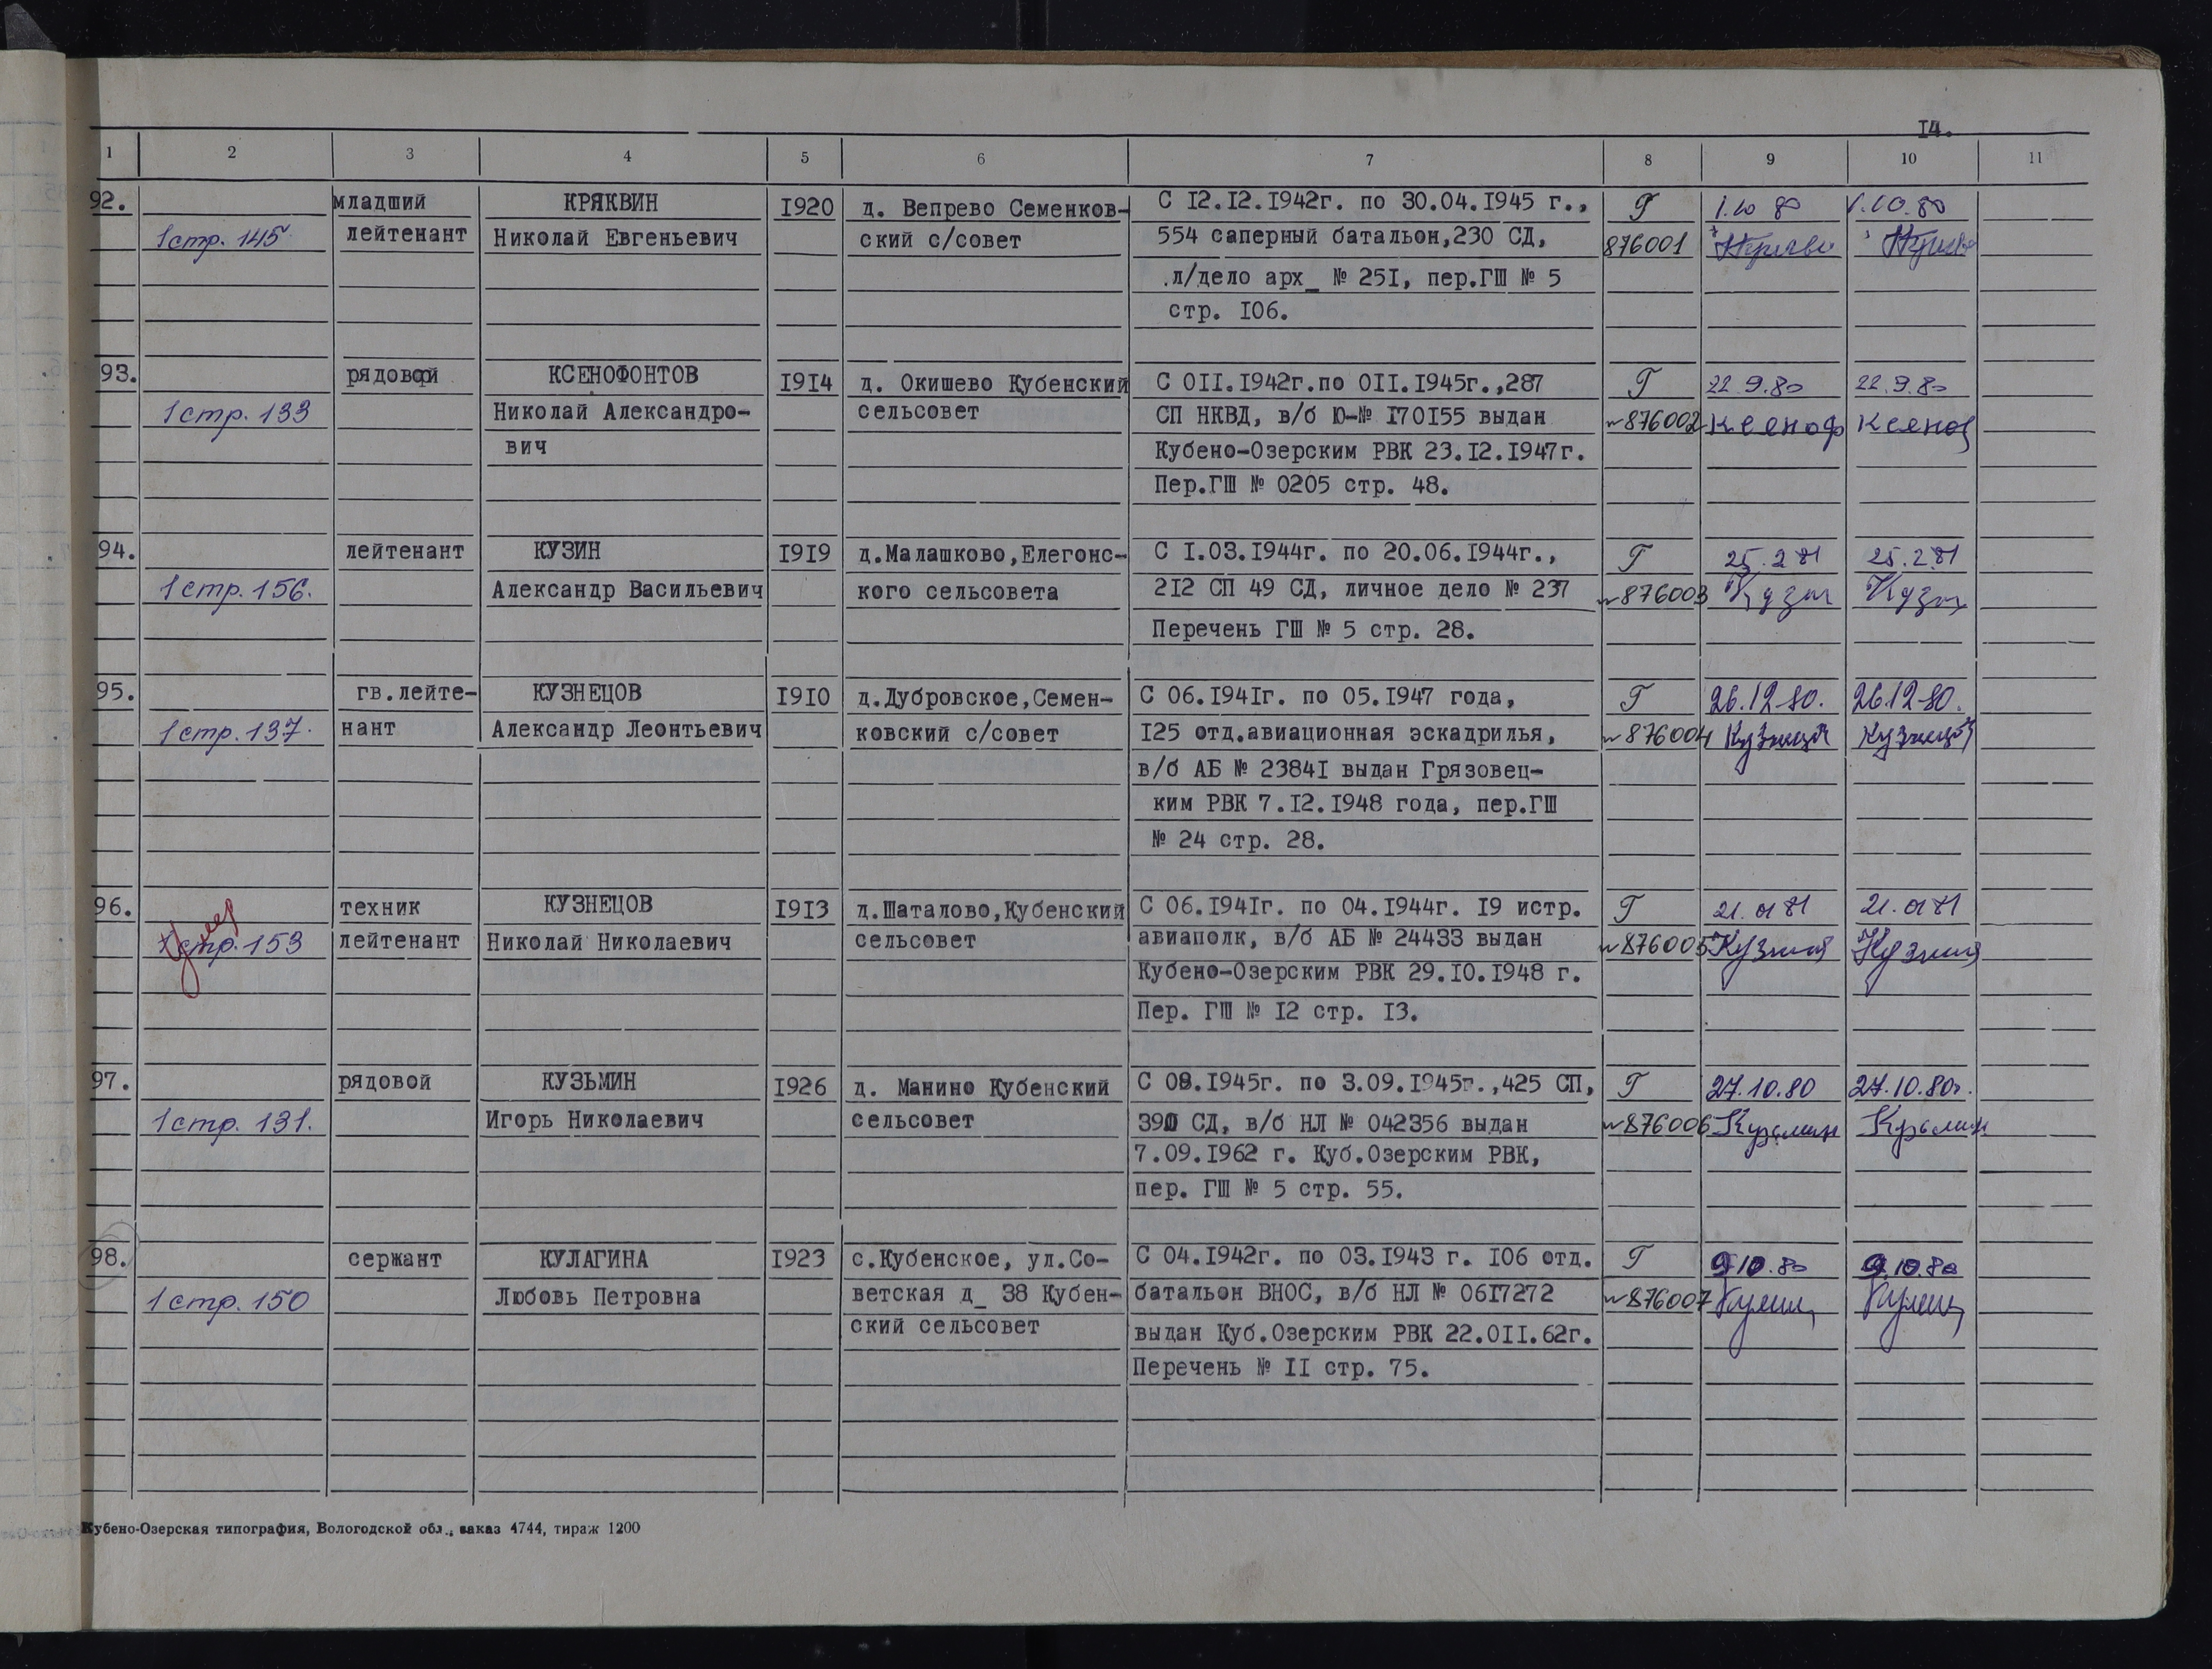 14.
1 2 3 4 5 6 7 8 9 10 11
92. младший КРЯКВИН 1920 д. Вепрево Семенков- С 12.12.1942г. по 30.04.1945 г., Г 1.10 80 1.10.80
1 стр. 145 лейтенант Николай Евгеньевич ский с/совет 554 саперный батальон,230 СД, 876001
л/дело арх_ № 251, пер.ГШ № 5
стр. 106.
93. рядовой КСЕНОФОНТОВ 1914 д. Окишево Кубенский С 011.1942г.по 011.1945г.,287 Г 22 9.80 22.9.80
1 стр. 133 Николай Александро- сельсовет СП НКВД, в/б Ю-№ 170155 выдан 876002 Ксеноф Ксеноф
вич Кубено-Озерским РВК 23.12.1947г.
Пер.ГШ № 0205 стр. 48.
94. лейтенант КУЗИН 1919 д.Малашково,Елегонс- С 1.03.1944г. по 20.06.1944г., Г 25.2 81 25.2.81
1 стр. 156. Александр Васильевич кого сельсовета 212 СП 49 СД, личное дело № 237 876003 Кузин Кузин
Перечень ГШ № 5 стр. 28.
95. гв.лейте- КУЗНЕЦОВ 1910 д.Дубровское,Семен- С 06.1941г. по 05.1947 года, Г 26.12-80. 26.12-80.
1 стр. 137. нант Александр Леонтьевич ковский с/совет 125 отд.авиационная эскадрилья, 876004 Кузнецов Кузнецов
в/б АБ № 23841 выдан Грязовец-
ким РВК 7.12.1948 года, пер.ГШ
№ 24 стр. 28.
96. техник КУЗНЕЦОВ 1913 д.Шаталово,Кубенский С 06.1941г. по 04.1944г. 19 истр. Г 21.01 81 21.01 81
Умер
1 стр. 153 лейтенант Николай Николаевич сельсовет авиаполк, в/б АБ № 24433 выдан 876005
Кубено-Озерским РВК 29.10.1948 г.
Пер. ГШ № 12 стр. 13.
97. рядовой КУЗЬМИН 1926 д. Манино Кубенский С 08.1945г. по 3.09.1945г.,425 СП, Г 27.10.80 27.10.80г.
1 стр. 131. Игорь Николаевич сельсовет 390 СД, в/б НЛ № 042356 выдан 876006 Кузьмин Кузьмин
7.09.1962 г. Куб.Озерским РВК,
пер. ГШ № 5 стр. 55.
98. сержант КУЛАГИНА 1923 с.Кубенское, ул.Со- С 04.1942г. по 03.1943 г. 106 отд. Г 9.10.80 9.10.80
1 стр. 150 Любовь Петровна ветская д_ 38 Кубен- батальон ВНОС, в/б НЛ № 0617272 876007
ский сельсовет выдан Куб.Озерским РВК 22.011.62г.
Перечень № 11 стр. 75.
Кубено-Озерская типография, Вологодской обл., заказ 4744, тираж 1200